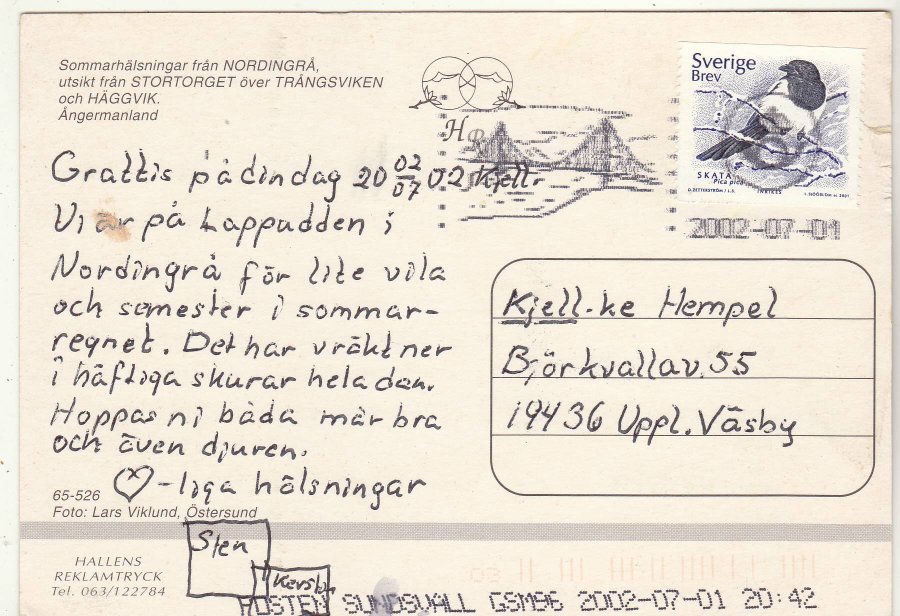 Sommarhälsningar från NORDINGRÅ,
utsikt från STORTORGET över TRÅNGSVIKEN
och HÄGGVIK.
Ångermanland
Sverige
Brev
SKATA
Pica pica
2002-07-01
Grattis på dindag 20 02/07 02 Kjell-
Vi är på Lappudden i
Nordingrå för lite vila
och semester i sommar-
regnet. Det har vräkt ner
i häftiga skurar hela dan.
Hoppas ni båda mår bra
och även djuren.
-liga hälsningar
Sten
Kjell-ke Hempel
Björkvallav. 55
19436 Uppl. Väsby
65-526
Foto: Lars Viklund, Östersund
HALLENS
REKLAMTRYCK
Tel. 063/122784
POSTEN SUNDSVALL GSM96 2002-07-01 20:42